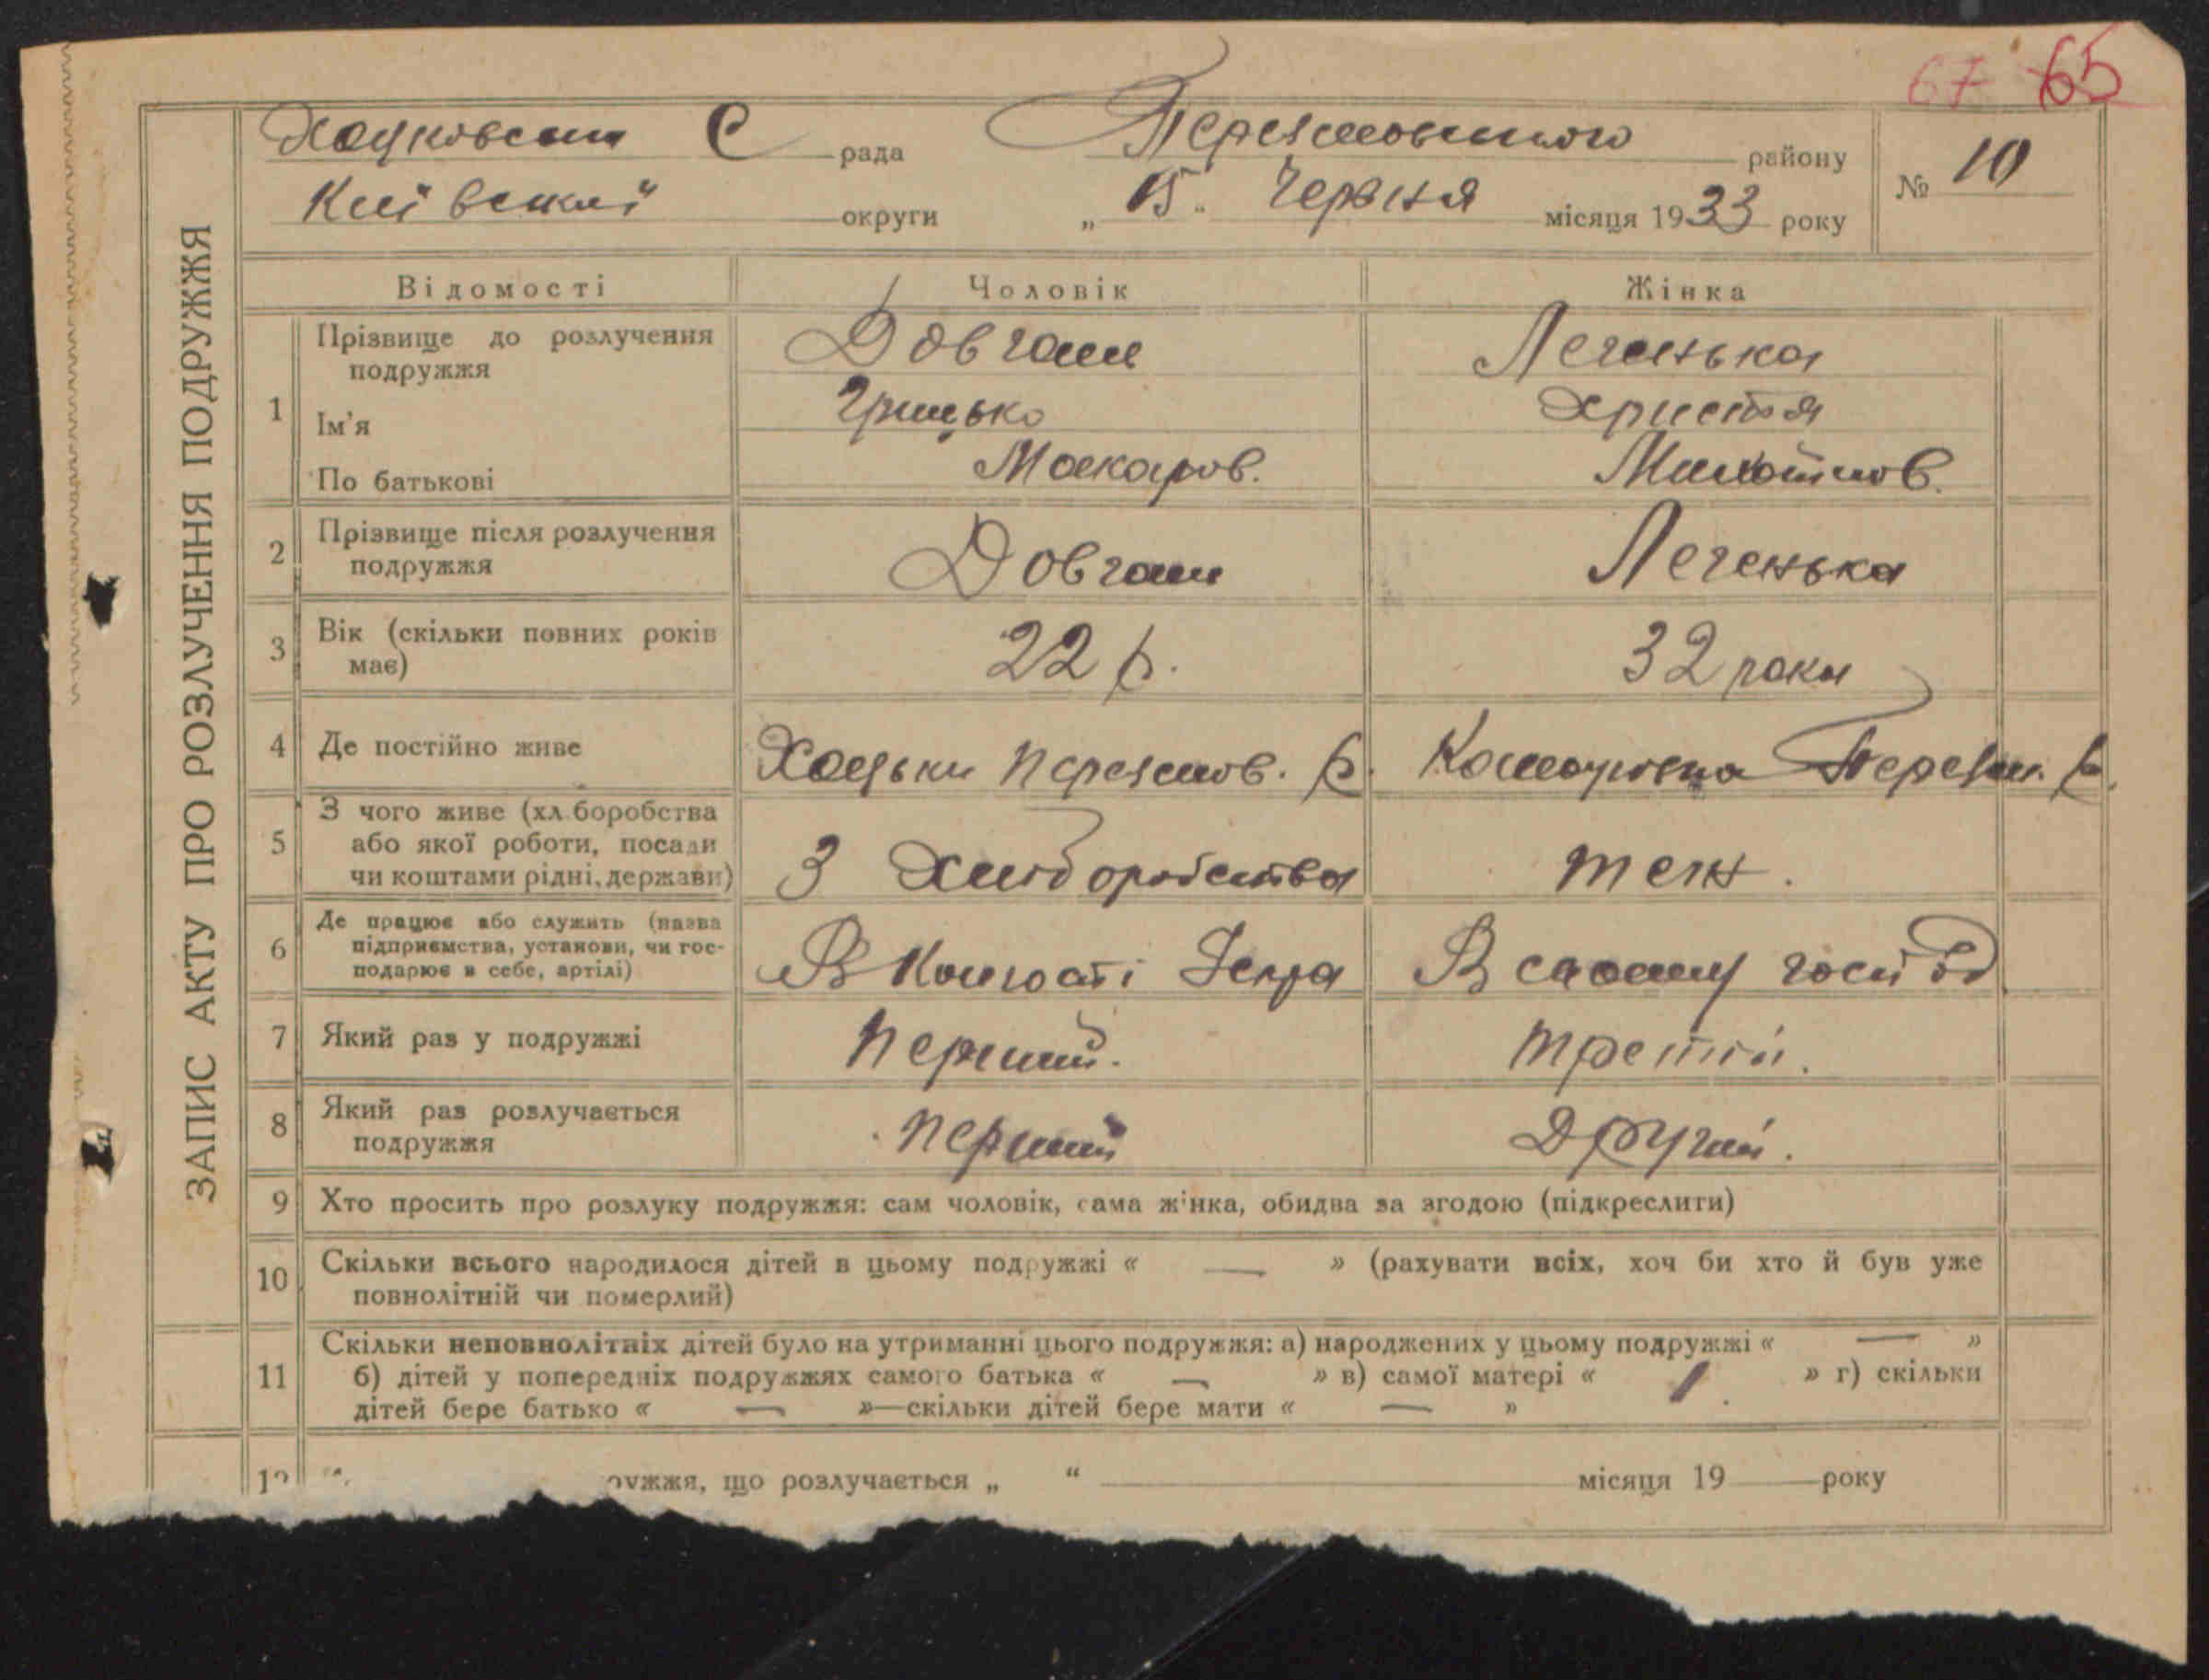 67 65
Хацковська С рада Переяславського району
№ 10
Київської округи „ 15 " Червня місяця 1933 року
ЗАПИС АКТУ ПРО РОЗЛУЧЕННЯ ПОДРУЖЖЯ
Відомості Чоловік Жінка
1 Прізвище до розлучення подружжя Довгаль Легенька
Ім'я Грицько Христя
По батькові Макаров.
2 Прізвище після розлучення подружжя Довгаль Легенька
3 Вік (скільки повних років має) 22 р. 32 роки
4 Де постійно живе Хацьки Переяслов. р. Переясл. р.
5 З чого живе (хл.боробства або якої роботи, посади чи коштами рідні, держави) З Хліборобства теж.
6 Де працює або служить (назва підприємства, установи, чи господарює в себе, артілі) В Колгоспі Іскра В своєму госп
7 Який раз у подружжі перший. третій.
8 Який раз розлучається подружжя перший Другий.
9 Хто просить про розлуку подружжя: сам чоловік, сама жінка, обидва за згодою (підкреслити)
10 Скільки всього народилося дітей в цьому подружжі « — » (рахувати всіх, хоч би хто й був уже
повнолітній чи померлий)
11 Скільки неповнолітніх дітей було на утриманні цього подружжя: а) народжених у цьому подружжі « — »
б) дітей у попередніх подружжях самого батька « — » в) самої матері « 1 » г) скільки
дітей бере батько « — »—скільки дітей бере мати « — »
ружжя, що розлучається „ “ місяця 19 року